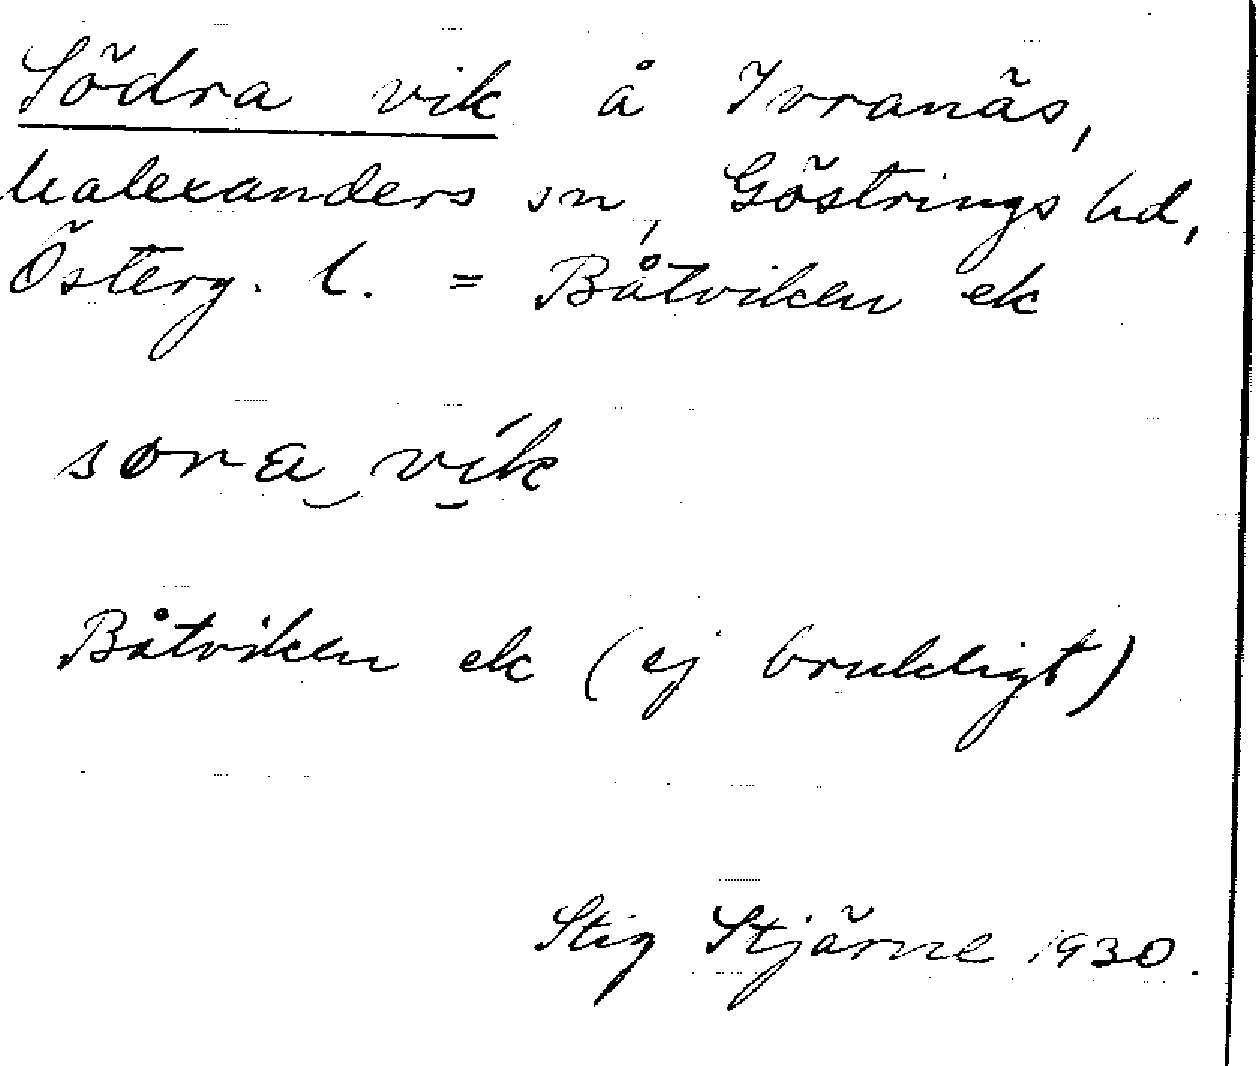 Södra vik å Ivranäs,
Malexanders sn, Göstrings hd,
Österg. l. = Båtviken ek
søra vík
Båtviken ek (ej brukligt)
Stig Stjärne 1930.